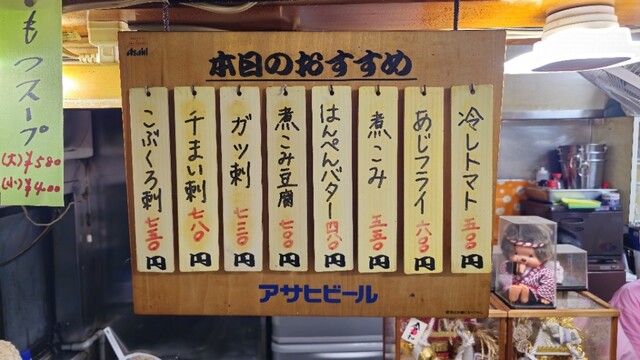 Asahi
本日のおすすめ
冷しトマト 五〇〇円
あじフライ 六〇〇円
煮こみ 五五〇円
はんぺんバター 四八〇円
煮こみ豆腐 七〇〇円
ガツ刺 七三〇円
千まい刺 七八〇円
こぶくろ刺 七三〇円
アサヒビール
もつスープ
(大)¥580
(小)¥400